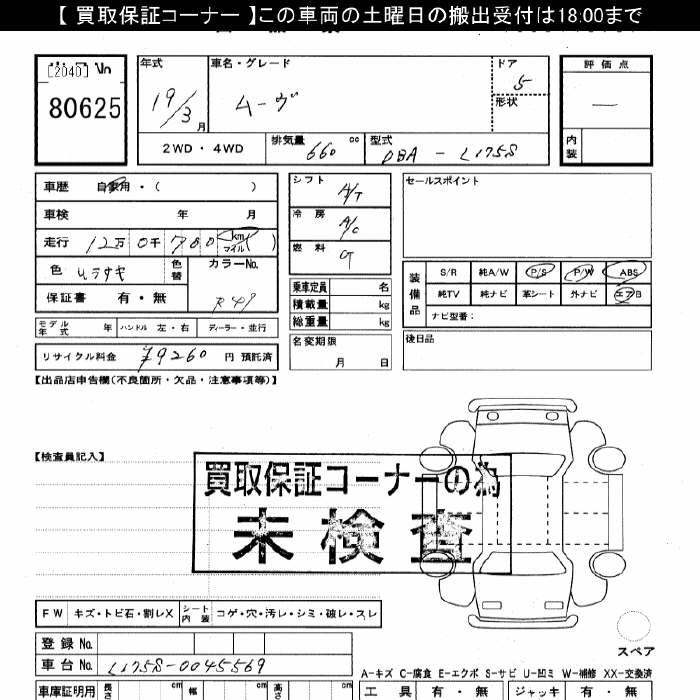 【 買取保証コーナー 】この車両の土曜日の搬出受付は18:00まで
[2040] No
80625
年式
19/3 月
車名・グレード
ムーヴ
ドア
5
形状
評価点
—
内装
2WD・4WD
排気量 660 cc
型式 DBA - L175S
車歴 自家用・( )
車検 年 月
走行 12万 0千 700 (km マイル)
色 ムラサキ
色替
カラーNo.
R49
保証書 有・無
シフト A/T
冷房 A/C
燃料 G
セールスポイント
装備品
S/R 純A/W P/S P/W ABS
純TV 純ナビ 革シート 外ナビ エアB
ナビ型番:
乗車定員 名
積載量 kg
総重量 kg
モデル年式 年 ハンドル 左・右 ディーラー・並行
名変期限
月 日
後日品
リサイクル料金 ¥9260 円 預託済
【出品店申告欄(不良箇所・欠品・注意事項等)】
【検査員記入】
買取保証コーナーの為
未検査
FW キズ・トビ石・割レX シート内装 コゲ・穴・汚レ・シミ・破レ・スレ
スペア
登録No.
車台No. L175S-0045569
A-キズ C-腐食 E-エクボ S-サビ U-凹ミ W-補修 XX-交換済
車庫証明用 長さ cm 幅 cm 高さ cm
工具 有・無 ジャッキ 有・無